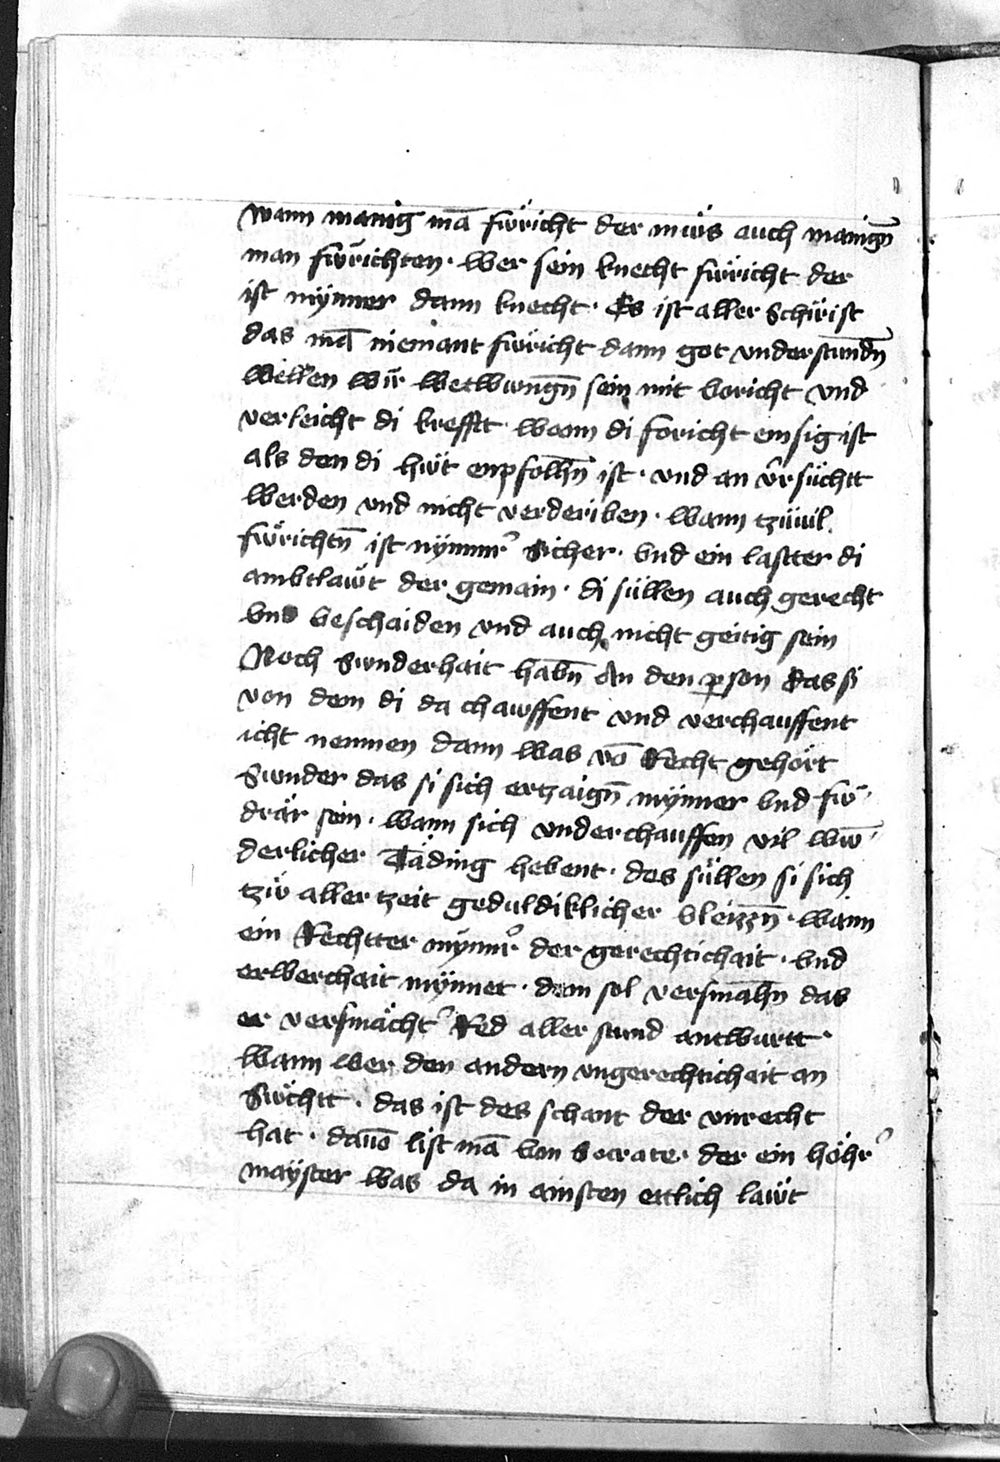 wann manig mā fẅricht der mẅs auch manigñ
man fẅrichten · wer sein knecht fẅricht der
ist mÿnner dann knecht · Es ist aller schirist
das mā niemant fẅricht dann got vnderstundñ
wellen wir wetwungñ sein mit voricht vnd
verleicht di krefftt wann di foricht emsig ist
als den di hẅt enpfolhñ ist · vnd an vrsüchtt
werden vnd nicht verderiben · wann tzüuil
fẅrichtñ ist nÿmm̄ʼ sicher · vnd ein lastter di
ambtlawt der gemain · di süllen auch gerecht
vnd beschaiden vnd auch nicht geitig sein
Noch sunderhait habñ An den ꝑson das si
von dem di da chawffent vnd verchauffent
icht nemmen dann was vō Recht gehört
Sunder das si sich ertzaigñ mÿnner vnd fẅ-
drär sein · wann sich vnderchauffen vil wū-
derlicher Täding hebent · das süllen si sich
tzü aller tzeit geduldiklicher vleizzñ · wann
ein Rechtter mÿnnʼ der gerechtichait · vnd
erberchait mÿnnet · dem sol versmahñ das
er versmächtʼ Red aller stund antwurtt ·
wann wer den andern vngerechtichait an
Süchtt · das ist des schant der vnrecht
hat · dauō list mā von Socrate · der ein höhrʼ
maÿster was da in ainsten ettlich lawt